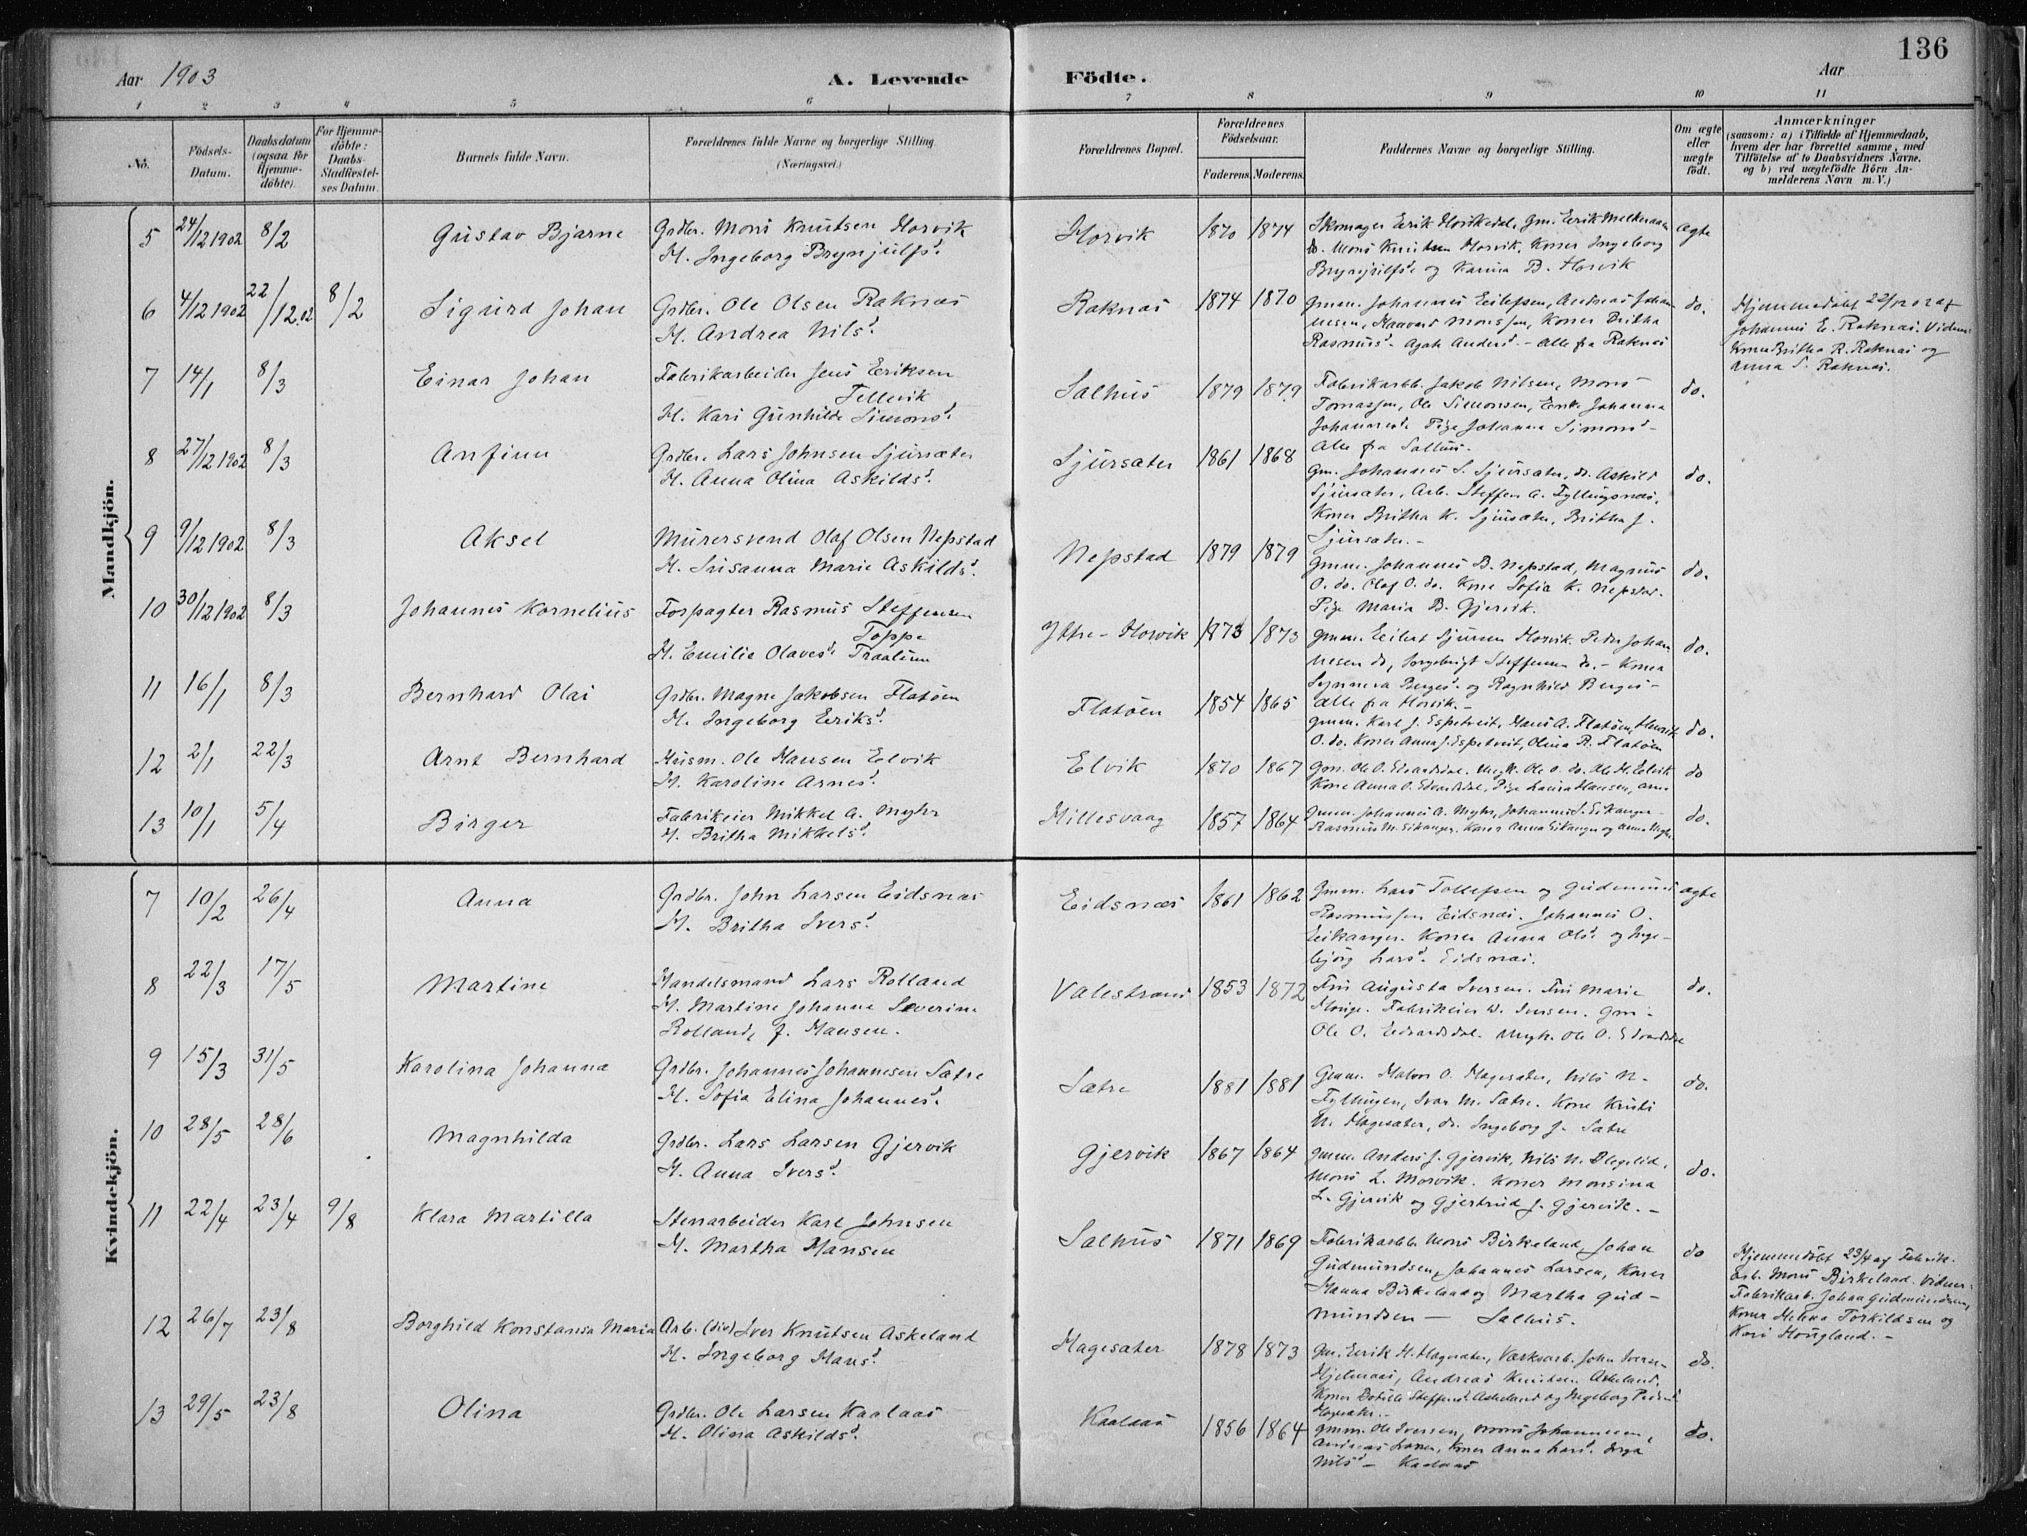 136
Aar 1903
A. Levende Födte.
Aar
1 2 3 4 5 6 7 8 9 10 11
No.
Födsels-Datum.
Daabsdatum (ogsaa for Hjemme-döbte).
For Hjemme-döbte: Daabs-Stadfæstel-ses Datum.
Barnets fulde Navn.
Forældrenes fulde Navne og borgerlige Stilling (Næringsvei.)
Forældrenes Bopæl.
Forældrenes Födselsaar.
Faderens. Moderens.
Faddernes Navne og borgerlige Stilling.
Om ægte eller uægte födt.
Anmærkninger
(saasom: a) i Tilfælde af Hjemmedaab, hvem der har forrettet samme, med Tilföielse af to Daabsvidners Navne. og b) ved uægtefödte Börn An-melderens Navn m. V.)
Mandkjön.
5 24/12 1902 8/2 Gustav Bjarne
Grdbr. Mons Knutsen Horvik
H. Ingeborg Brynjulfsd.
Horvik 1870 1874
Skomager Erik Gm. Erik
do. Mons Knutsen Horvik. Koner Ingeborg
Brynjulfsd. og Karina B. Horvik
ægte
6 4/12 1902 22/12.02 8/2 Sigurd Johan
Grdbr. Ole Olsen Raknæs
H. Andrea Nilsd.
Raknæs 1874 1870
Gmm. Johannes Eilefsen, Andreas Johan
nesen, Haavard Monssen, Koner Britha
Rasmusd. Agate Andersd. - Alle fra Raknæs
do.
Hjemmedöbt 22/12 02 af
Johannes E. Raknæs. Vidner
Kone Britha R. Raknæs og
Anna S. Raknæs.
7 14/1 8/3 Einar Johan
Fabrikarbeider Jens Eriksen
Tellevik
H. Kari Gunhilde Simonsd.
Salhus 1879 1879
Fabrikarb. Jakob Nilsen, Mons
Tomassen, Ole Simonsen, Enke Johanna
Johannesd. Pige Johanna Simonsd -
Alle fra Salhus.
do.
8 27/12 1902 8/3 Anfinn
Grdbr. Lars Johnsen Sjursæter
H. Anna Olina Askildsd.
Sjursæter 1861 1868
Gm. Johannes S. Sjursæter, do. Askild
Sjursæter, Arb. Steffen A. Fyllingsnæs,
Koner Britha K. Sjursæter, Britha J.
Sjursæter. -
do.
9 9/12 1902 8/3 Aksel
Murersvend Olaf Olsen Nepstad
H. Susanna Marie Askildsd.
Nepstad 1879 1879
Gmm. Johannes B. Nepstad, Magnus
O. do. Olaf O. do. Kone Sofia K. Nepstad.
Pige Maria B. Gjervik.
do.
10 30/12 1902 8/3 Johannes Kornelius
Forpagter Rasmus Steffensen
Toppe
H. Emilie Olavesd. Traalum
Ytre-Horvik 1873 1873
Gmm. Eilert Sjursen Horvik. Peder Johan
nesen do, Ingebrigt Steffensen do. - Koner
Synneva Bergesd. og Ragnhild Berges -
Alle fra Horvik. -
do.
11 16/1 8/3 Bernhard Olai
Grdbr. Magne Jakobsen Flatöen
H. Ingeborg Eriksd.
Flatöen 1854 1865
Gmm. Karl J. Espetveit, Hans A. Flatöen, Henrik
O. do. Koner Anna J. Espetveit, Olina R. Flatöen
do.
12 2/1 22/3 Arnt Bernhard
Husm. Ole Hansen Elvik
H. Karoline Arnesd.
Elvik 1870 1867
Gm. Ole O. Edvardsdal. Ungk. Ole O. do. Ole H. Elvik
Kone Anna O. Edvardsdal, Pige Laura Hansen,
do
13 10/1 5/4 Birger
Fabrikeier Mikkel A. Myhr
H. Britha Mikkelsd.
Hillesvaag 1857 1864
Gmm. Johannes A. Myhr, Johannes J. Eikanger
Rasmus M. Eikanger. Koner Anna Eikanger og Anna Myhr
do.
Kvindekjön.
7 10/2 26/4 Anna
Grdbr. John Larsen Eidsnæs
H. Britha Iversd.
Eidsnæs 1861 1862
Gmm. Lars Tollefsen og Gudmund
Rasmussen Eidsnæs. Johannes O.
Eikanger. Koner Anna Olsd. og Inge-
björg Larsd. Eidsnæs.
ægte
8 22/3 17/5 Martine
Handelsmand Lars Rolland
H. Martine Johanna Severine
Rolland, f. Hansen.
Valestrand 1853 1872
Fru Augusta Iversen. Fru Marie
Monge. Fabrikeier W. Iversen. Gm -
Ole O. Edvardsdal. Ungk. Ole O. Edvardsdal
do.
9 15/3 31/5 Karolina Johanna
Grdbr. Johannes Johannesen Sætre
H. Sofia Elina Johannesd.
Sætre 1881 1881
Gmm. Halvor O. Hagesæter, Nils N.
Fyllingen, Ivar M. Sætre. Kone Kristi
N. Hagesæter, do. Ingeborg J. Sætre
do.
10 28/5 28/6 Magnhilda
Grdbr. Lars Larsen Gjervik
H. Anna Iversd.
Gjervik 1867 1864
Gmm. Anders J. Gjervik, Nils N.
Mons L. Morvik. Koner Monsina
L. Gjervik og Gjertrud J. Gjervik. -
do.
11 22/4 23/4 9/8 Klara Martilla
Stenarbeider Karl Johnsen
H. Martha Hansen
Salhus 1871 1869
Fabrikarb. Mons Birkeland, Johan
Gudmundsen, Johannes Larsen, Koner
Hanna Birkeland og Martha Gud-
mundsen — Salhus.
do
Hjemmedöbt 23/4 af Fabrik-
arb. Mons Birkeland. Vidner
Fabrikarb. Johan Gudmundsen,
Koner Helena Torkildsen og
Kari Hougland. -
12 26/7 23/8 Borghild Konstansa Maria
Arb. (div) Iver Knutsen Askeland
H. Ingeborg Hansd.
Hagesæter 1878 1873
Gm. Erik H. Hagesæter, Værksarb. John Iversen
Hjelmaas, Andreas Knutsen Askeland,
Koner Steffensd. Askeland og Ingeborg
Hagesæter. -
do.
13 29/5 23/8 Olina
Grdbr. Ole Larsen Kaalaas
H. Olina Askildsd.
Kaalaas 1856 1864
Gmm. Ole Iversen, Mons Johannesen,
Andreas Larsen, Koner Anna Larsd. Inga
Nilsd — Kaalaas
do.